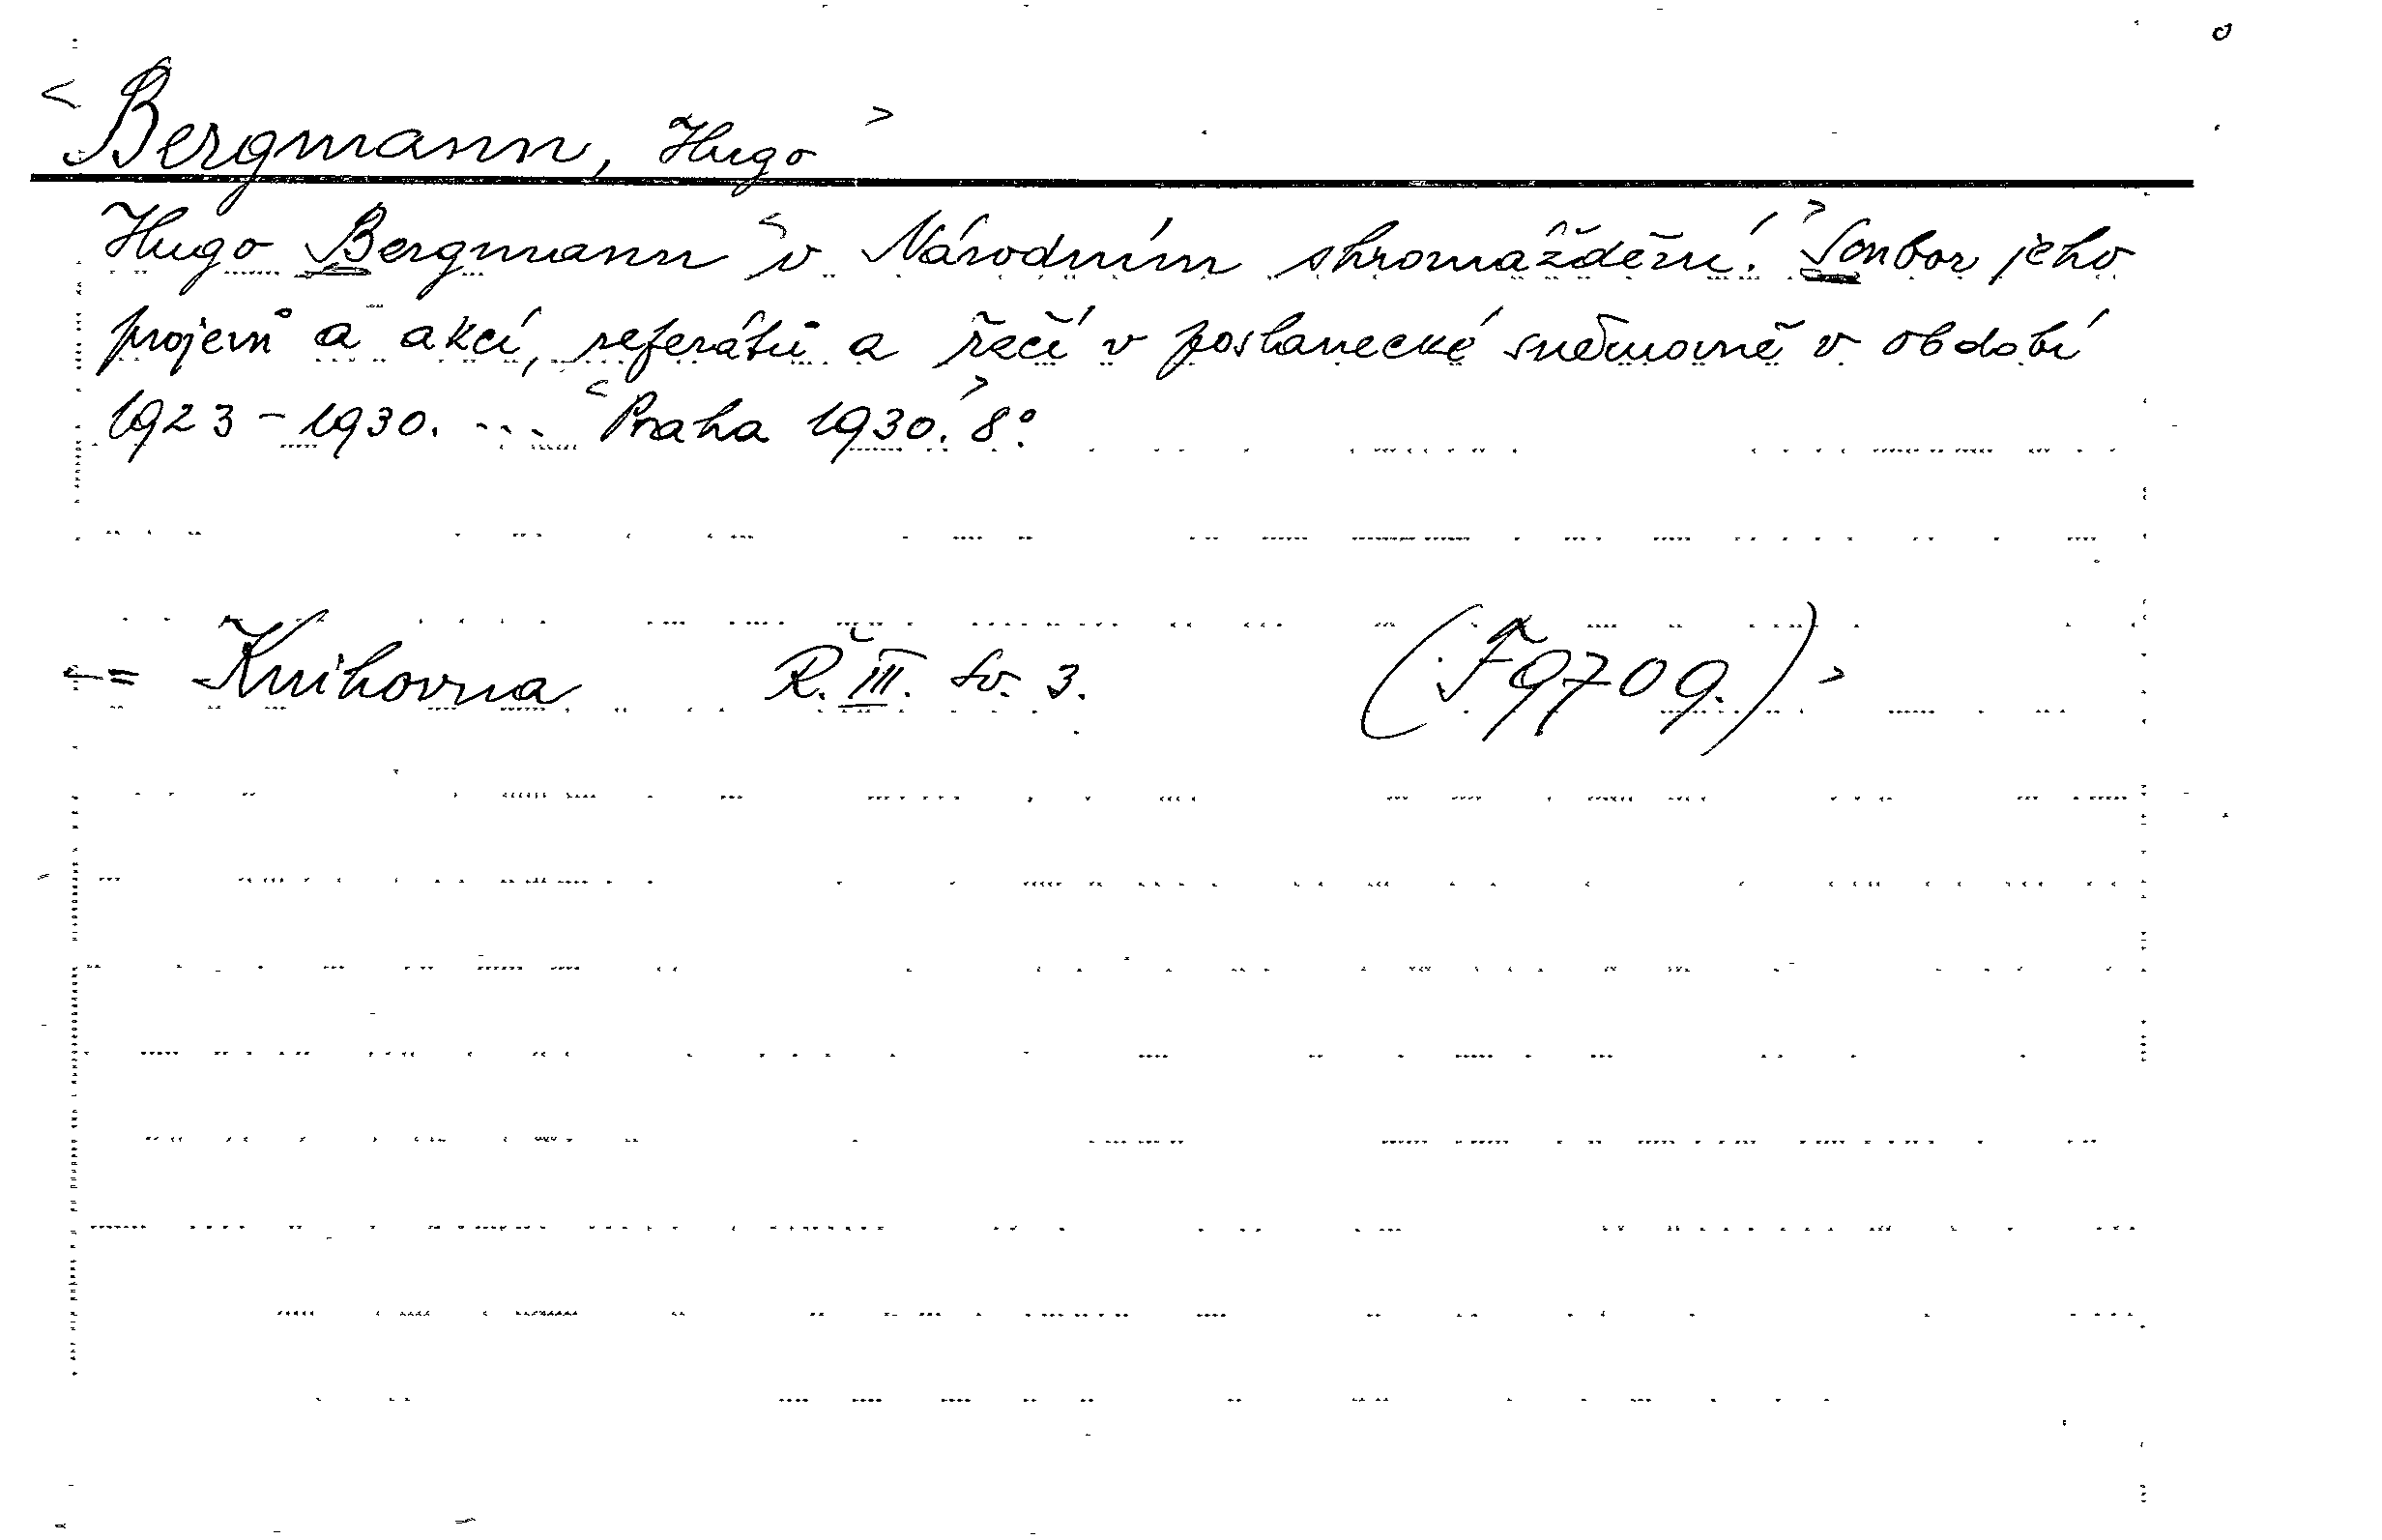 < Bergmann, Hugo >
Hugo Bergmann < v Národním shromáždění. > Soubor jeho
projevů a akcí, referátů a řečí v poslanecké sněmovně v období
1923-1930. ... < Praha 1930. > 8°.
<= Knihovna Ř. III. sv. 3. (F 9709.) >